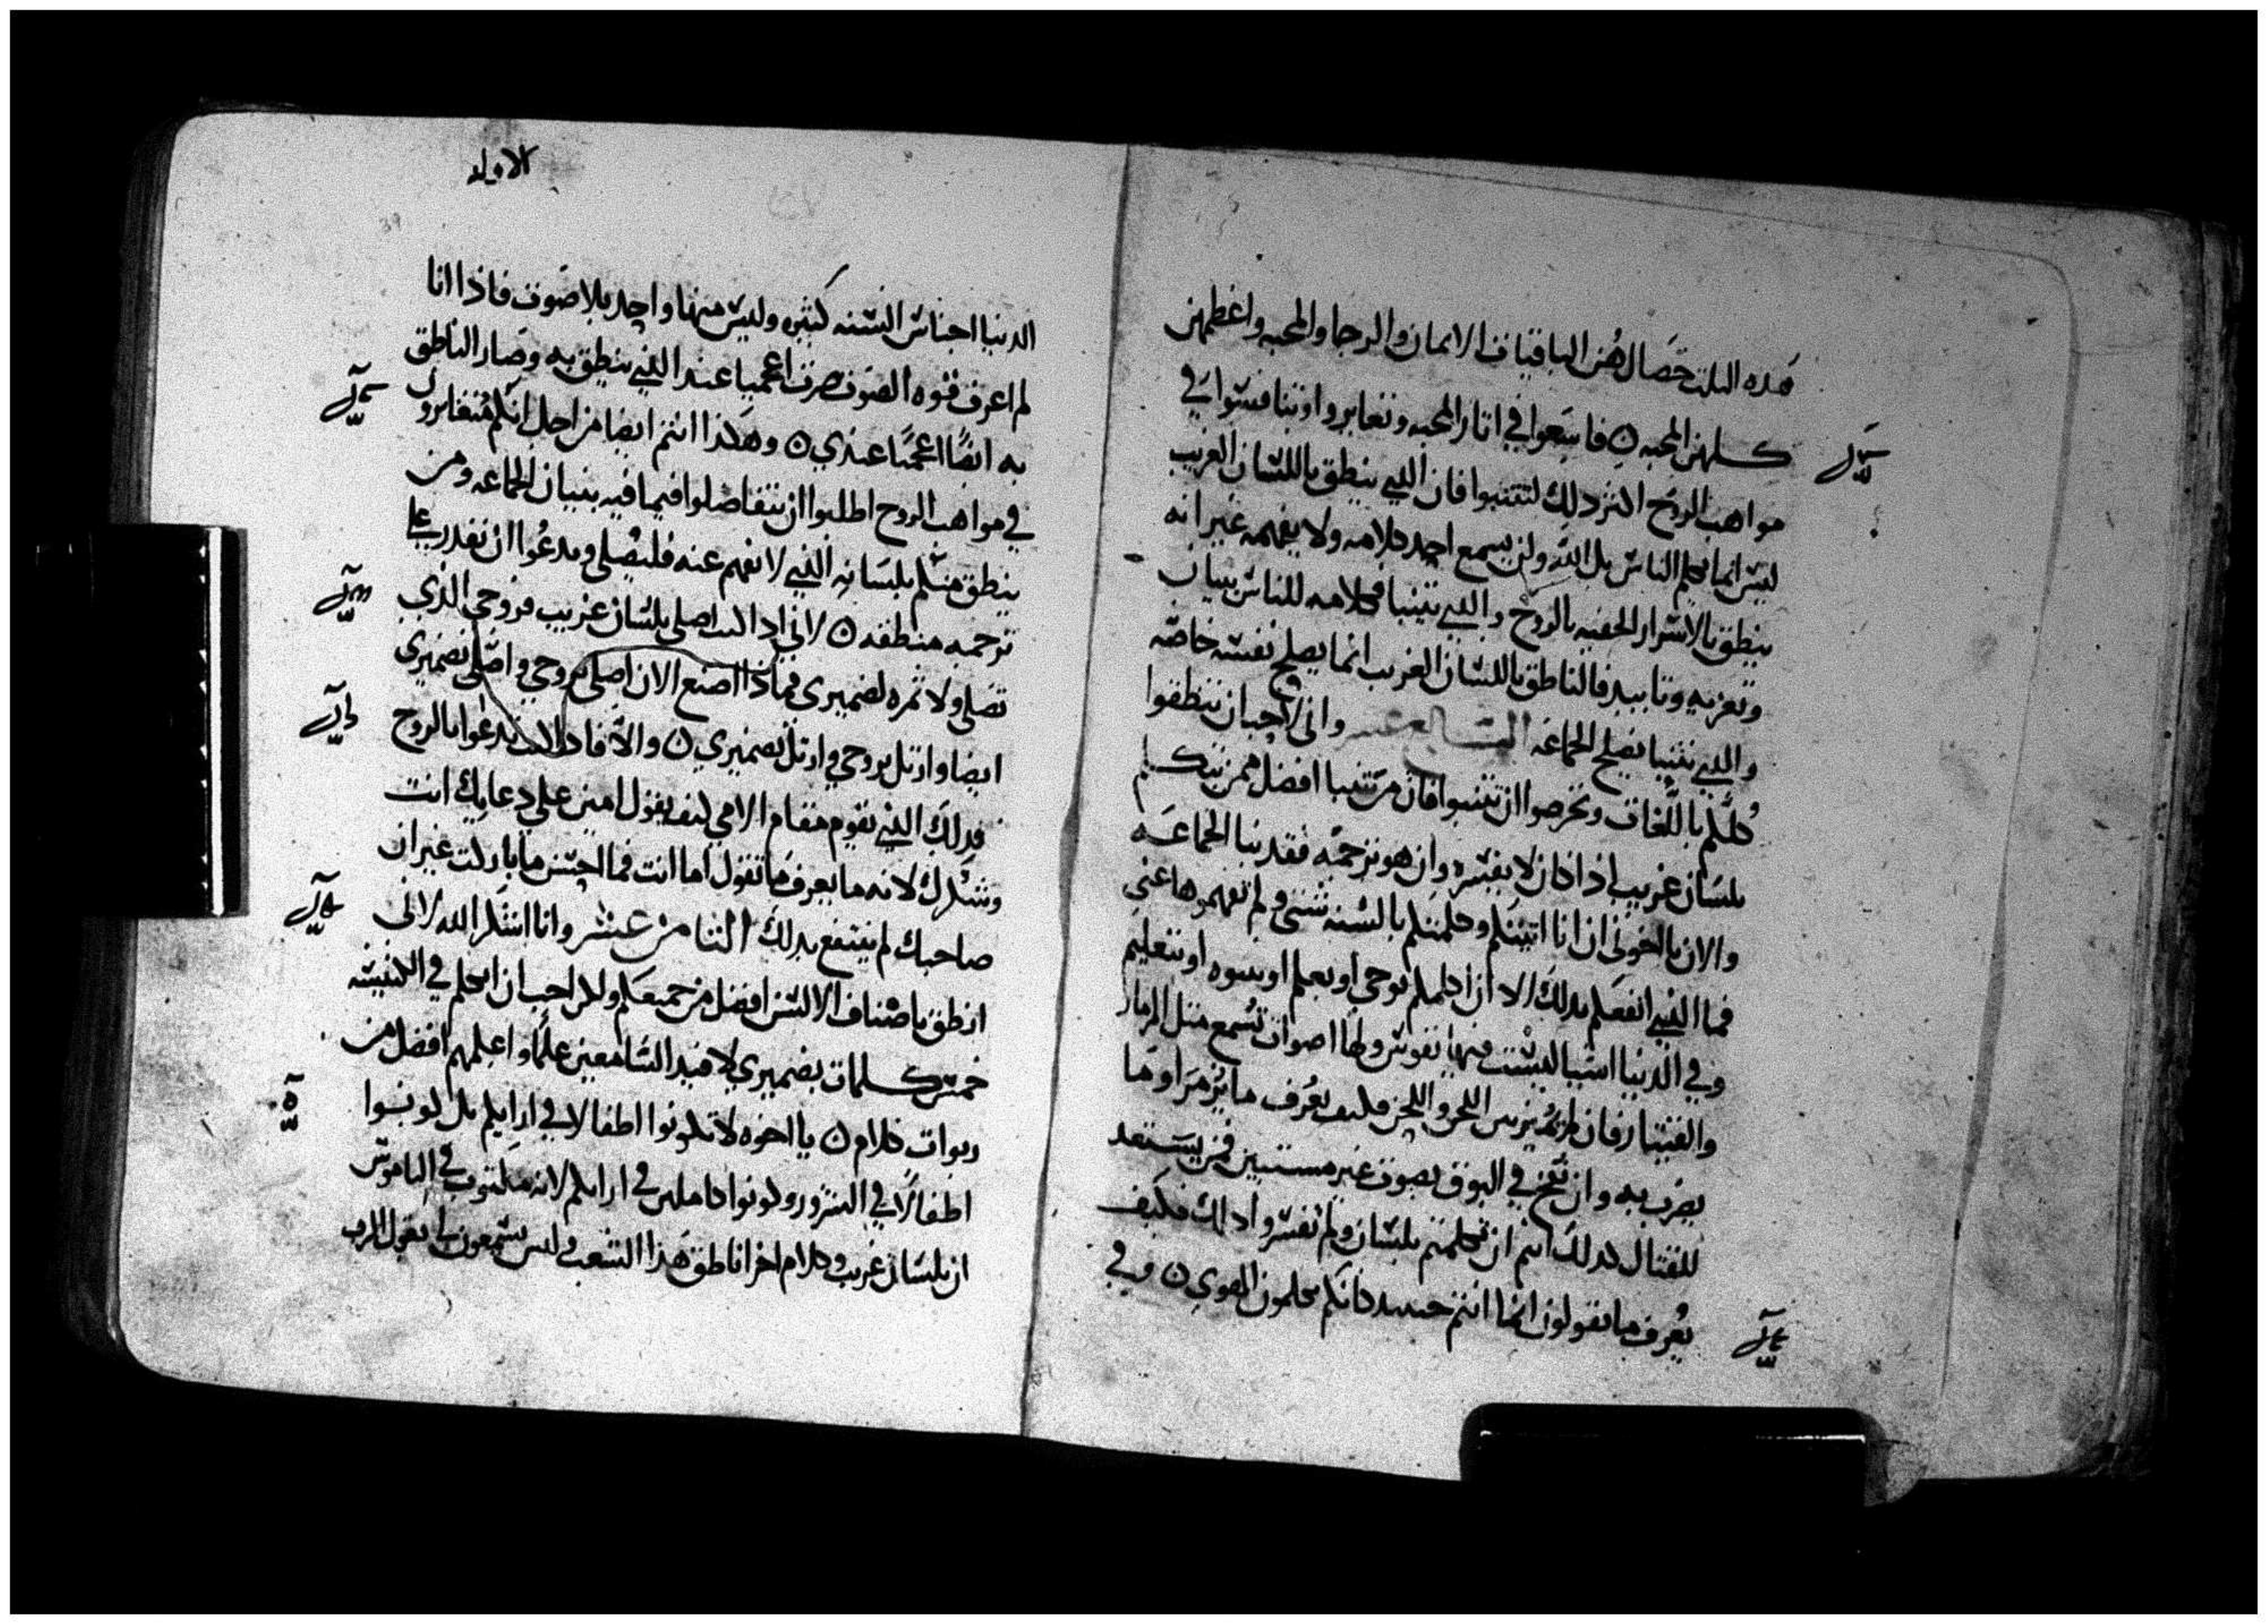 هذه الثلث خصال هن الباقيات الايمان والرجا والمحبه واعظمهن
كلهن المحبه ۞ فاسعوا في اثار المحبه وتغايروا وتنافسوا في
مواهب الروح اكثر ذلك لتتنبوا فان الذي ينطق باللسان الغريب
ليس انما يكلم الناس بل الله ولن يسمع احد كلامه ولا يفهمه غير انه
ينطق بالاسرار الخفيه بالروح والذي يتنبا فكلامه للناس بنيان
وتعزيه وتاييد فالناطق باللسان الغريب انما يصلح نفسه خاصه
والذي يتنبا يصلح الجماعه السابع عشر واني لاحب ان تنطقوا
كلكم باللغات وتحرصوا ان تتنبوا فان من تنبا افضل ممن تكلم
بلسان غريب اذا كان لا يفسره وان هو ترجمه فقد بنا الجماعه
والان يا اخوتي ان انا اتيتكم وكلمتكم بالسنه شتي ولم تفهموها عني
فما الذي انفعكم بذلك الا ان اكلمكم بوحي او بعلم او بنبوه او بتعليم
وفي الدنيا اشيا ليست فيها نفوس ولها اصوات تسمع مثل المزمار
والقيثار فان لم يميز بين اللحن واللحن فكيف يعرف ما يزمر او ما
يضرب به وان نفخ في البوق بصوت غير مستبين فمن يستعد
للقتال كذلك انتم ان تكلمتم بلسان ولم تفسروا ذلك فكيف
يعرف ما تقولون انما انتم حينيذ كانكم تكلمون الهوي ۞ وفي
الاوله
الدنيا اجناس السنه كثيره وليس منها واحد بلا صوت فاذا انا
لم اعرف قوه الصوت صرت اعجميا عند الذي ينطق به وصار الناطق
به ايضا اعجميا عندي ۞ وهكذا انتم ايضا من اجل انكم متغايرون
في مواهب الروح اطلبوا ان تتفاضلوا فيما فيه بنيان الجماعه ومن
ينطق منكم بلسانه الذي لا يفهم عنه فليصلي ويدعوا ان يقدر علي
ترجمه منطقه ۞ لاني اذا كنت اصلي بلسان غريب فروحي الذي
تصلي ولا ثمره لضميري فماذا اصنع الان اصلي بروحي واصلي بضميري
ايضا وارتل بروحي وارتل بضميري ۞ والا فاذا كنت تدعوا بالروح
فذلك الذي يقوم مقام الامي كيف يقول امين علي دعايك انت
وشكرك لانه ما يعرف ما تقول اما انت فما احسن ما باركت غير ان
صاحبك لم ينتفع بذلك الثامن عشر وانا اشكر الله لاني
انطق باصناف الالسن افضل من جميعكم ولكن احب ان اتكلم في الكنيسه
خمس كلمات بضميري لافيد السامعين علما واعلمهم افضل من
ربوات كلام ۞ يا اخوه لا تكونوا اطفالا في ارايكم بل كونوا
اطفالا في الشرور وكونوا كاملين في ارايكم لانه مكتوب في الناموس
ان بلسان غريب وكلام اخر اناطق هذا الشعب وليس يسمعون لي يقول الرب